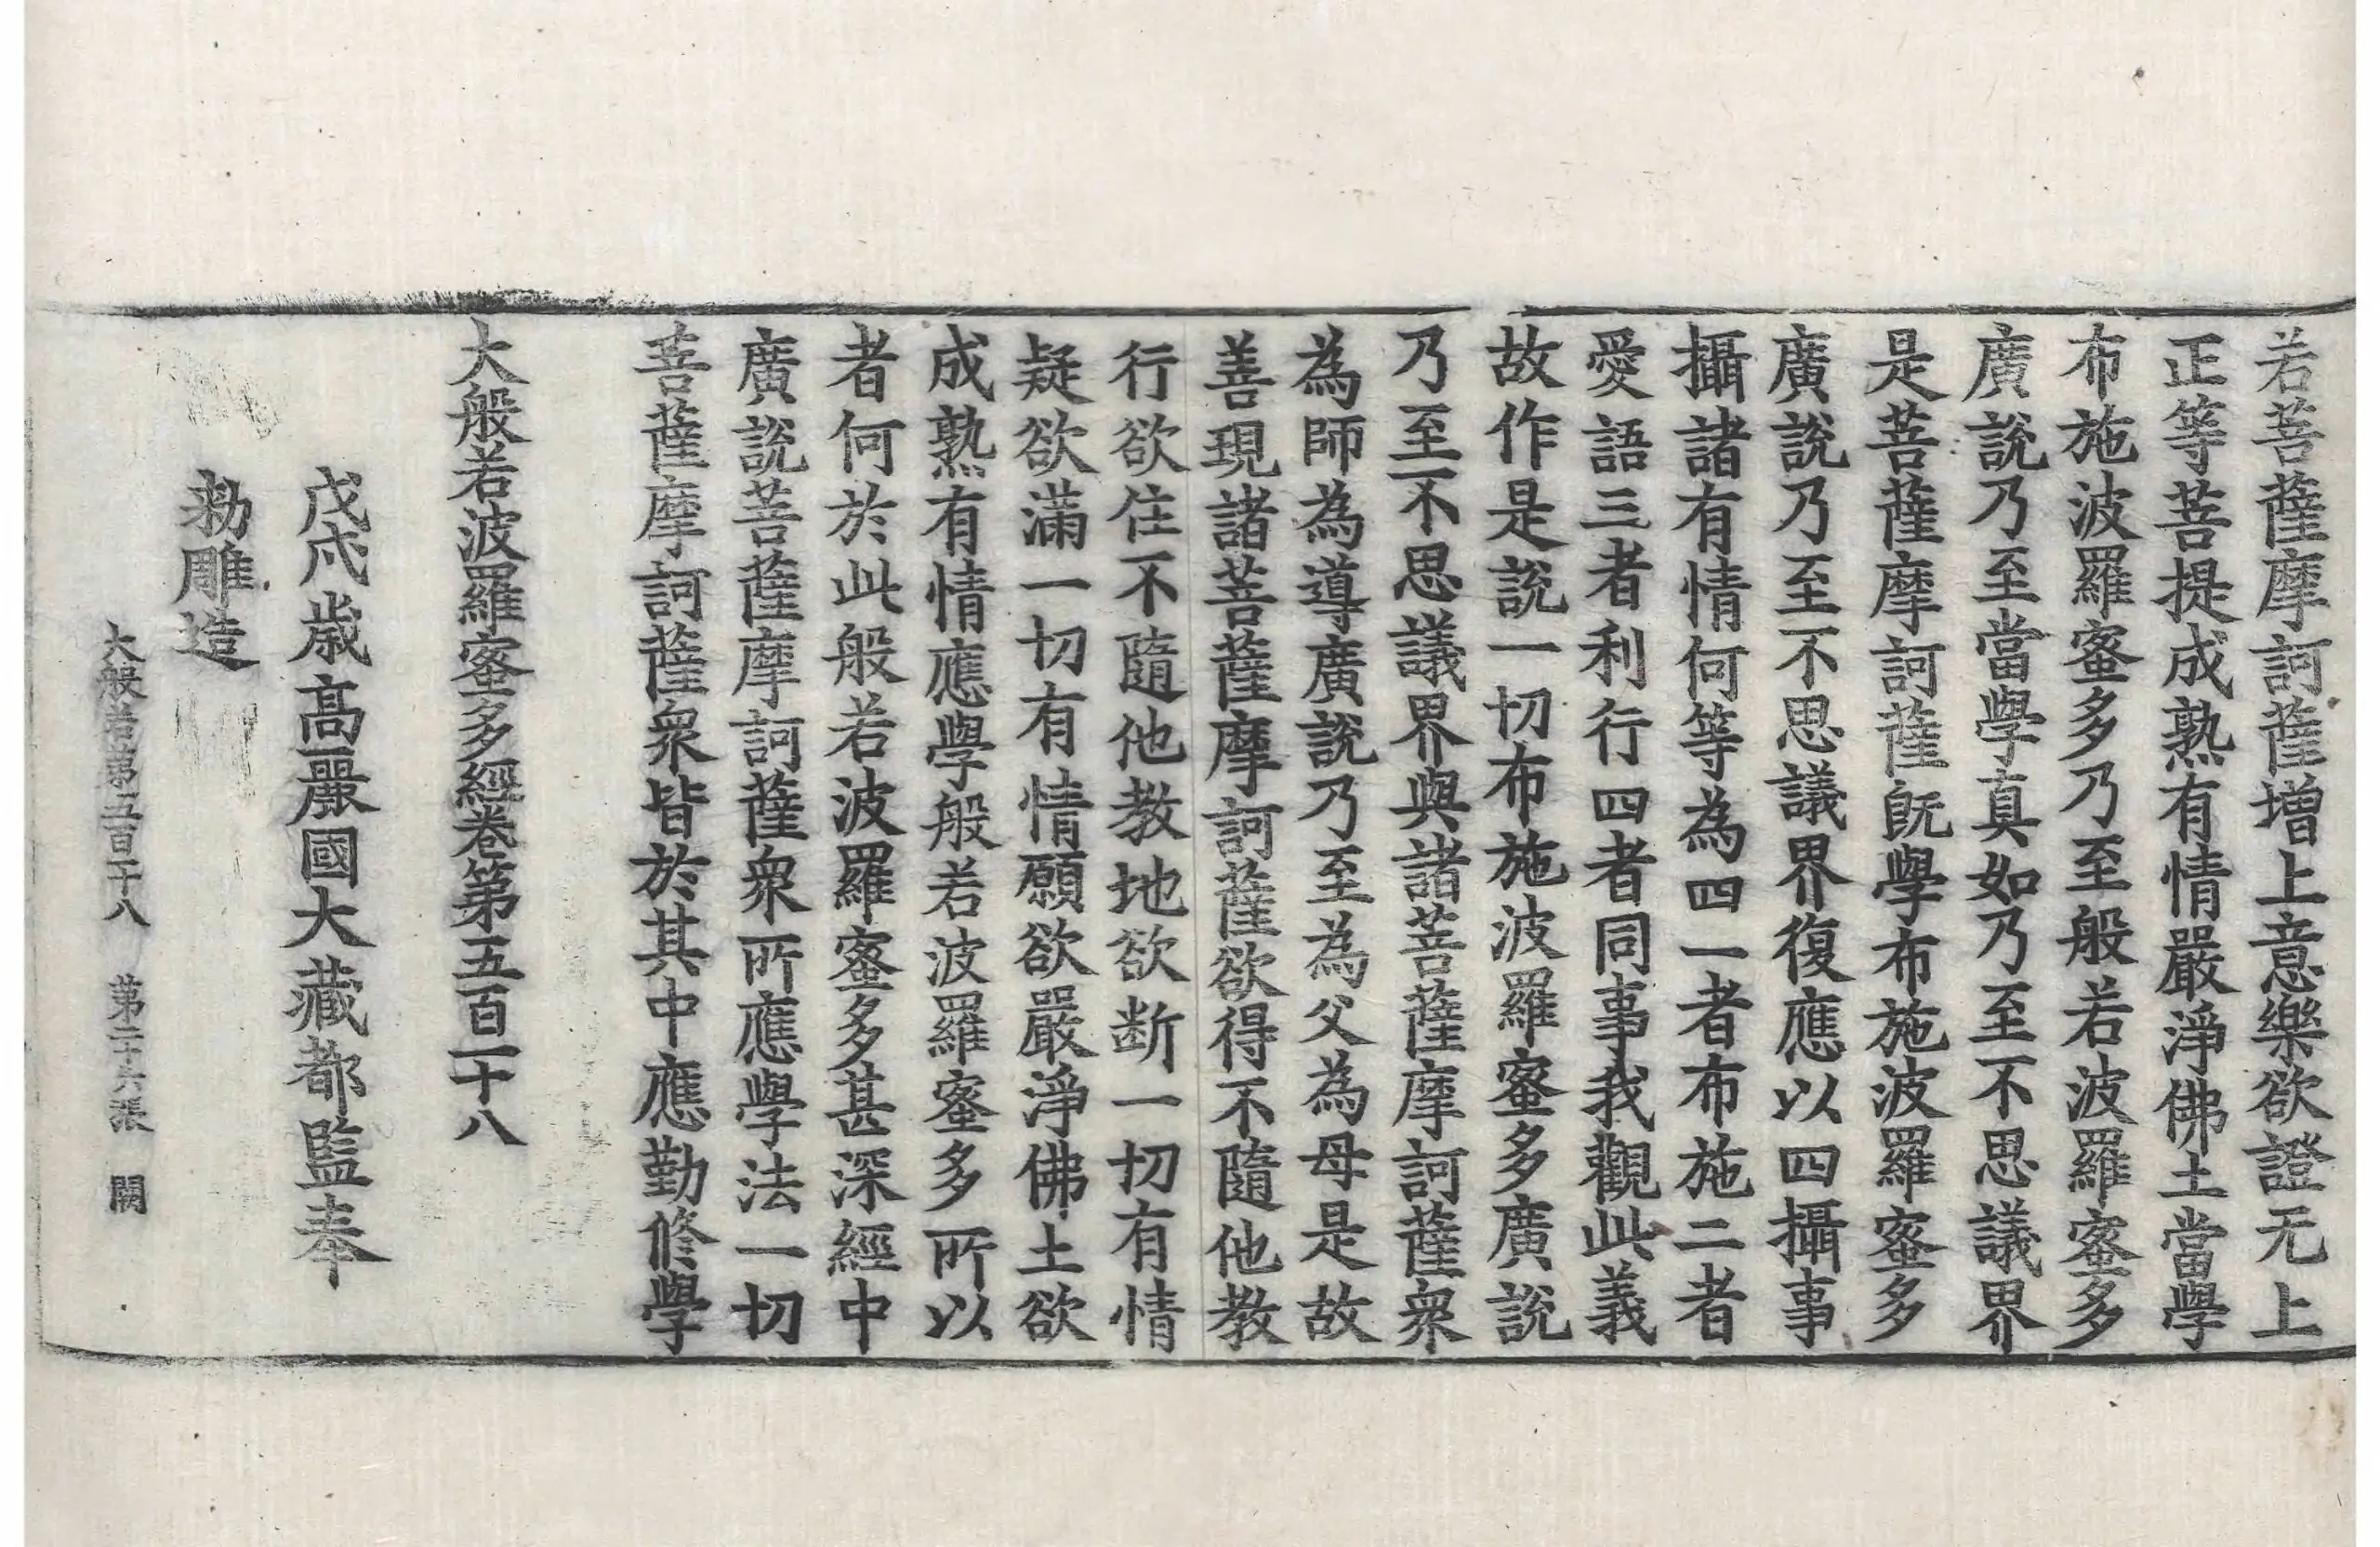 若菩薩摩訶薩增上意樂欲證无上
正等菩提成熟有情嚴淨佛土當學
布施波羅蜜多乃至般若波羅蜜多
廣說乃至當學真如乃至不思議界
是菩薩摩訶薩旣學布施波羅蜜多
廣說乃至不思議界復應以四攝事
攝諸有情何等為四一者布施二者
愛語三者利行四者同事我觀此義
故作是說一切布施波羅蜜多廣說
乃至不思議界與諸菩薩摩訶薩衆
為師為導廣說乃至為父為母是故
善現諸菩薩摩訶薩欲得不隨他教
行欲住不隨他教地欲断一切有情
疑欲滿一切有情願欲嚴淨佛土欲
成熟有情應學般若波羅蜜多所以
者何於此般若波羅蜜多甚深經中
廣說菩薩摩訶薩衆所應學法一切
菩薩摩訶薩衆皆於其中應勤修學
大般若波羅蜜多經卷第五百一十八
戊戌歲高麗國大藏都監奉
勅雕造
大般若第五百十八 第二十六張 闕